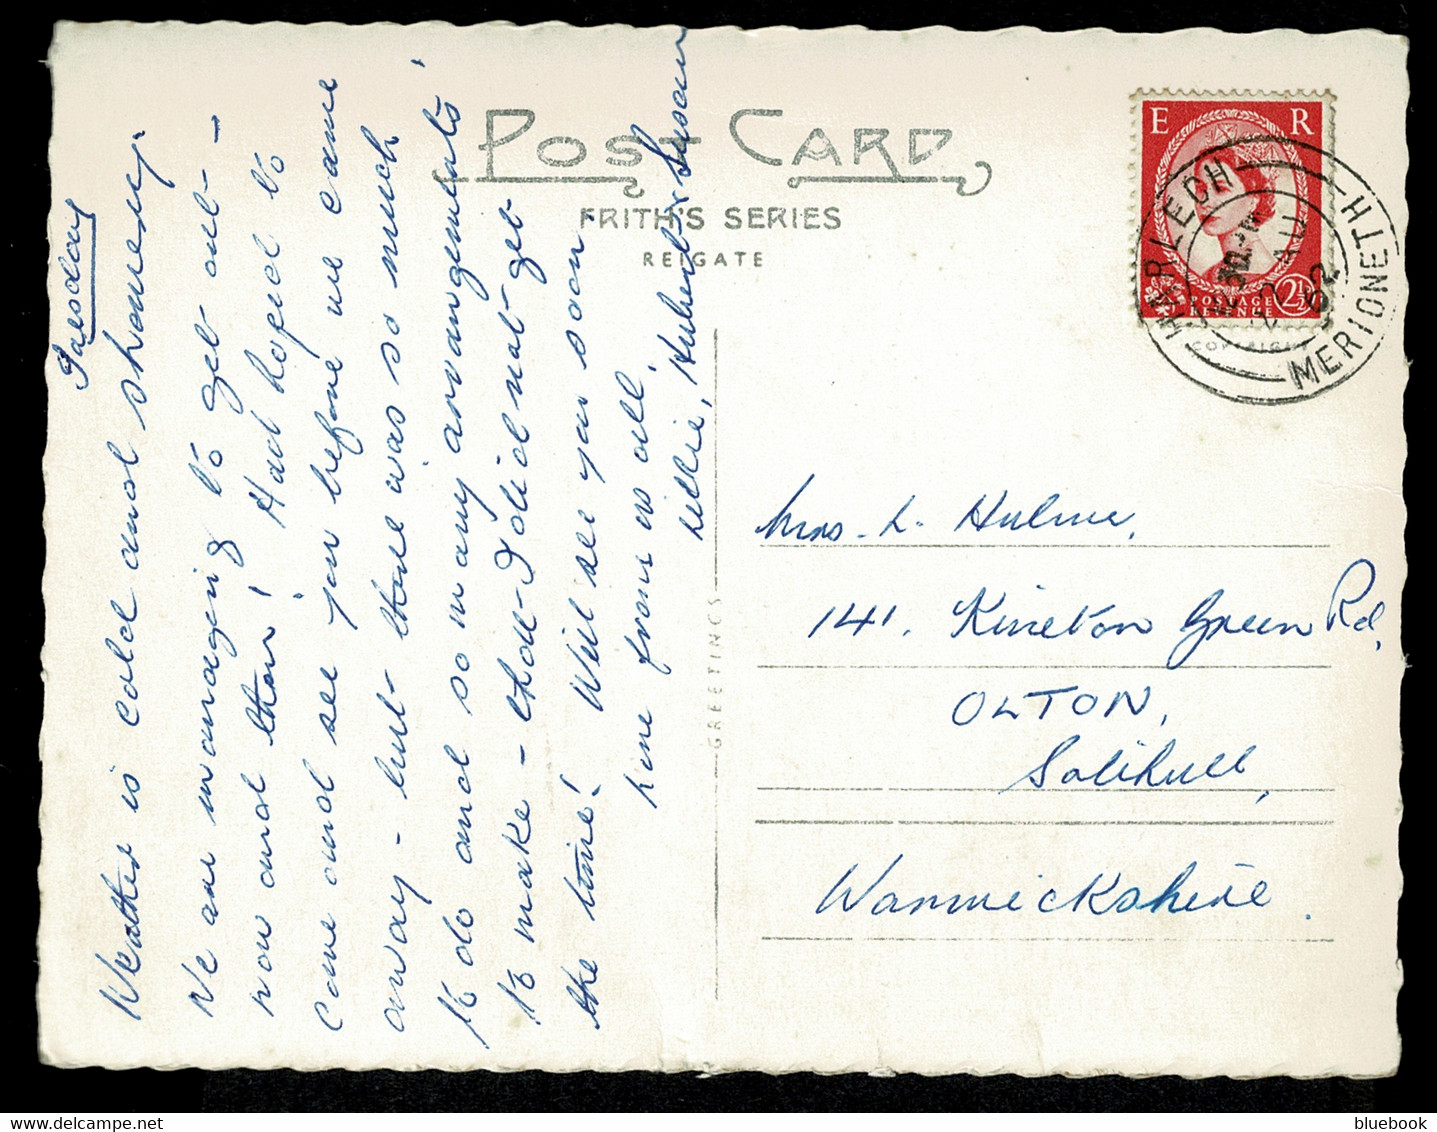 Tuesday
Weather is cold and showery.
We are managing to get out -
now and then! Had hoped to
come and see you before we came
away - but there was so much
to do and so many arrangements
to make - that I did not get
the time! Will see you soon.
Love from us all,
Lillie, Hubert & Susan
POST CARD
FRITH'S SERIES
REIGATE
GREETINGS
E R
POSTAGE REVENUE 2½
HARLECH
MERIONETH
AU
62
COPYRIGHT
Mrs. L. Hulme,
141. Kineton Green Rd.
OLTON,
Solihull,
Warwickshire.
bluebook